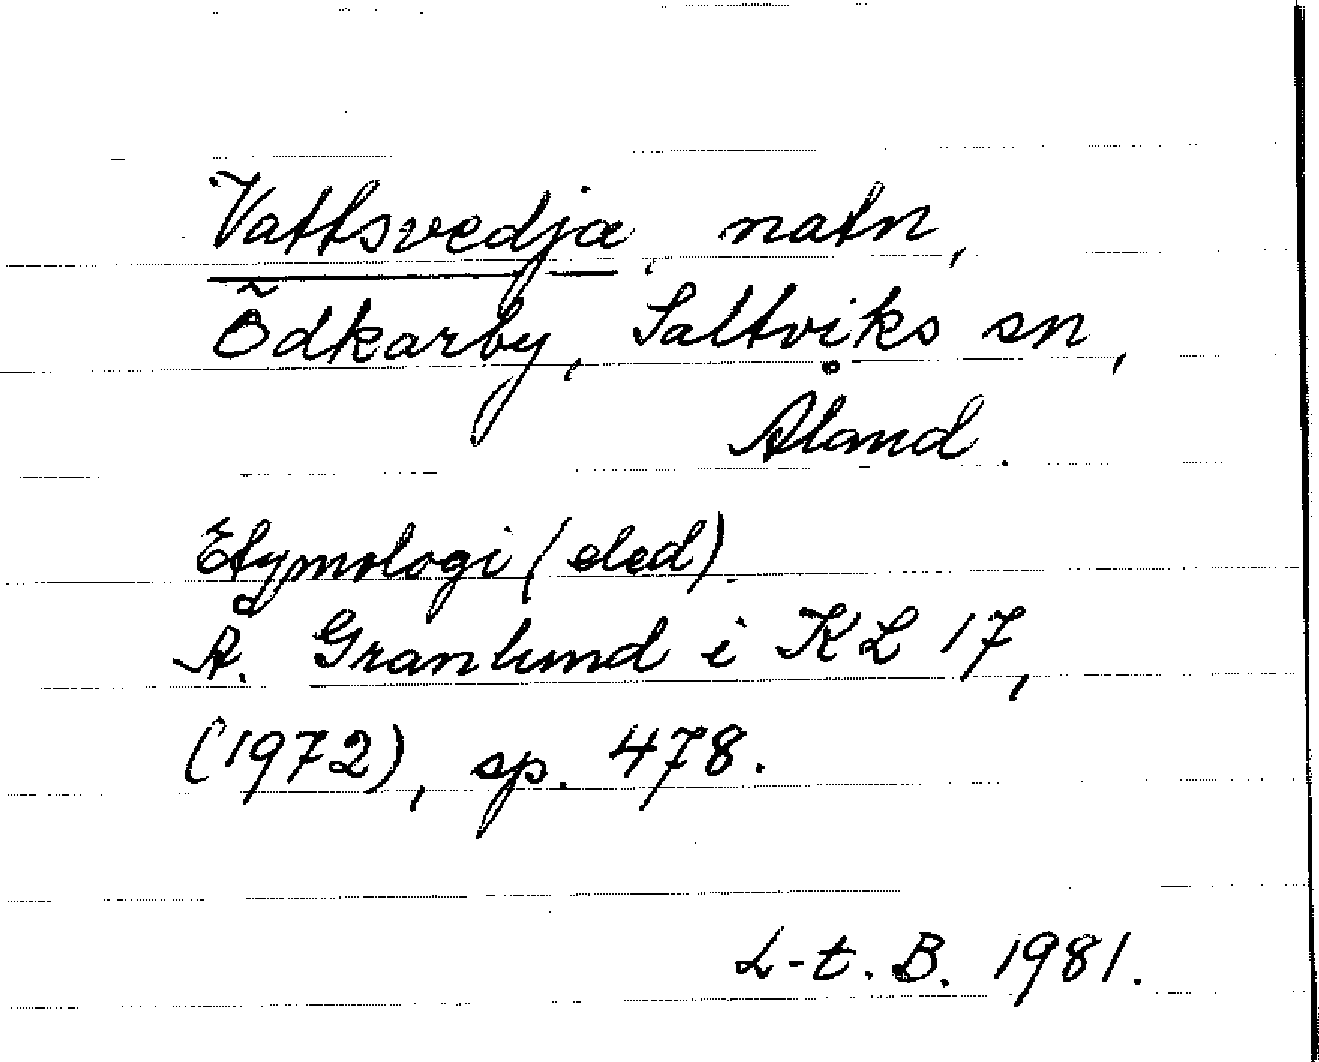 Vattsvedja, natn,
Ödkarby, Saltviks sn,
Åland.
Etymologi (eled).
Å. Granlund i KL 17,
(1972), sp. 478.
L-t. B. 1981.